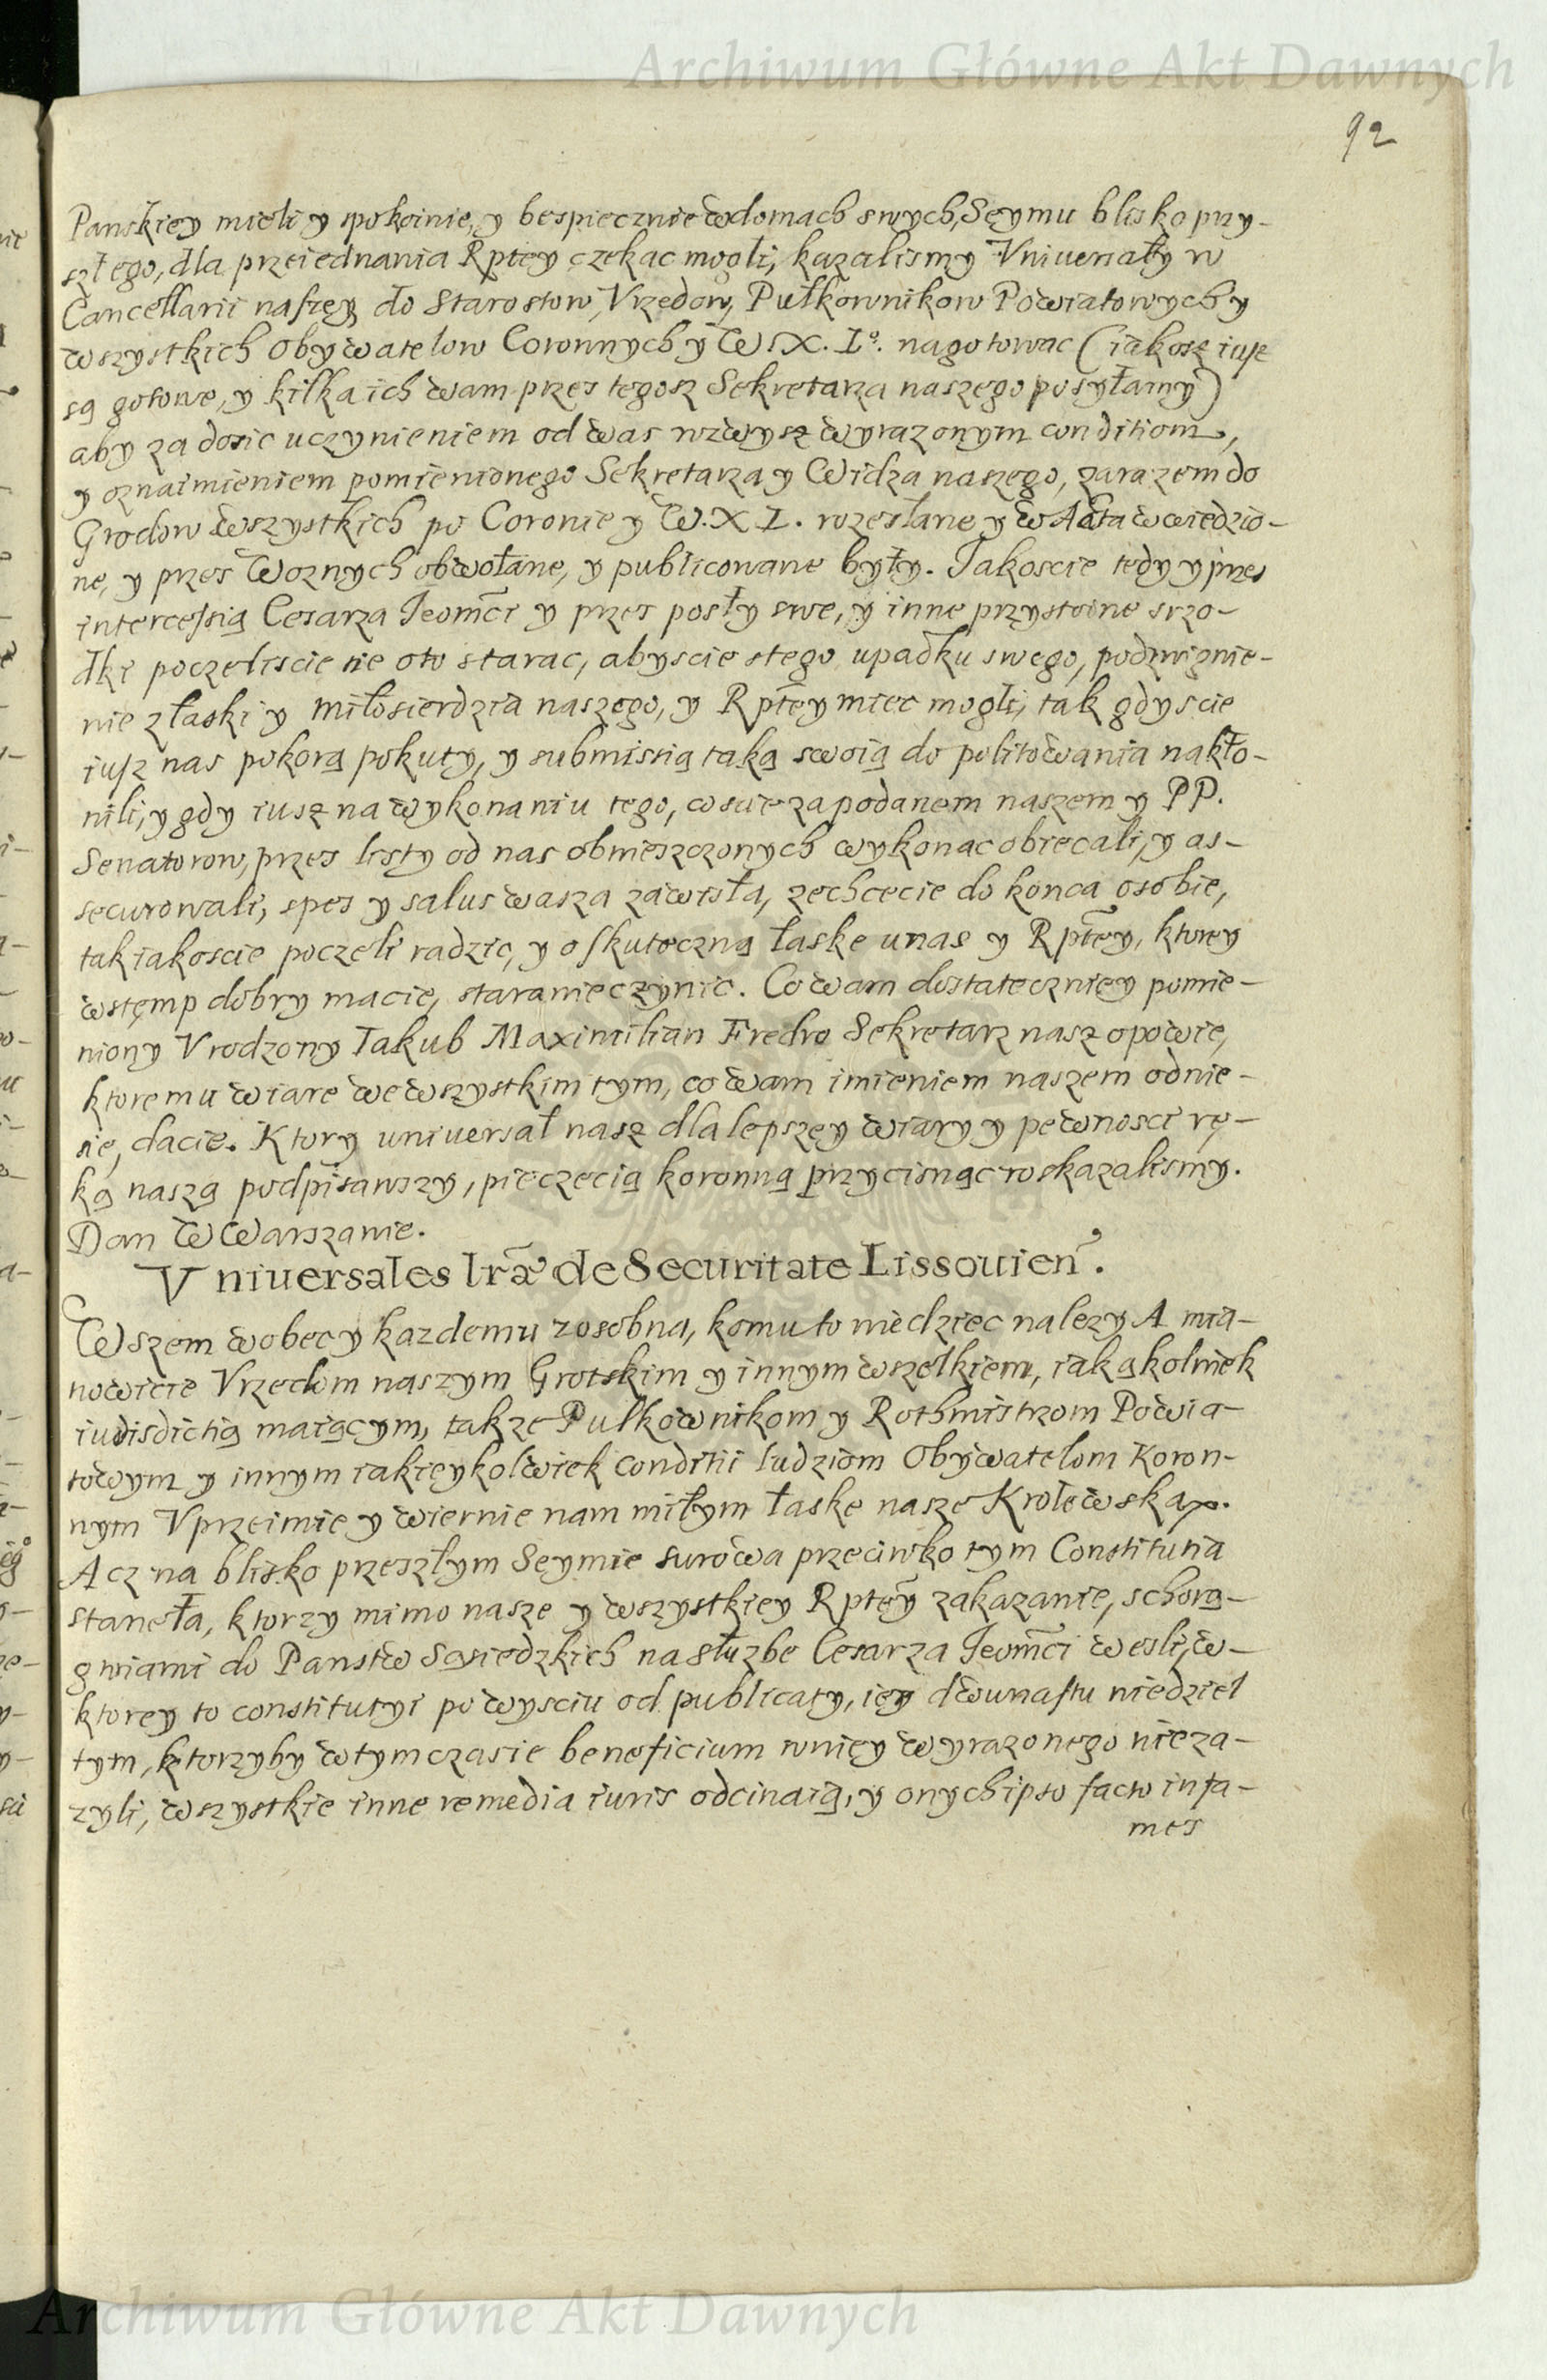 Archiwum Główne Akt Dawnych
92
Panskiey mieli y spokoinie, y bespiecznie w domach swych, Seymu blisko przy-
szłego, dla przeiednania Rptey czekac mogli, kazalismy Vniuersały w
Cancellarii naszey do Starostow, Vrzedow, Pułkownikow Powiatowych y
wszystkich Obywatelow Coronnych y W. X. Lo. nagotowac (iakosz iusz
są gotowe, y kilka ich wam przes tegosz Sekretarza naszego posyłamy)
aby za dosic uczynieniem od was wzwysz wyrazonym conditiom,
y oznaimieniem pomienionego Sekretarza y Widza naszego, zarazem do
Grodow wszystkich po Coronie y W. X. L. rozesłane y w Akta wwiedzio-
ne, y przes Woznych obwołane, y publicowane były. Jakoscie tedy y przes
intercessią Cesarza Jeomci y przes posły swe, y inne przystoine srzo-
dki poczeliscie sie oto starac, abyscie stego upadku swego, podzwignie-
nie złaski y miłosierdzia naszego, y Rptey miec mogli, tak gdyscie
iusz nas pokorą pokuty, y submissią taką swoią do politowania nakło-
nili, y gdy iusz na wykonaniu tego, coscie za podanem naszem y PP.
Senatorow, przes listy od nas obwieszczonych wykonac obiecali, y as-
securowali, spes y salus wasza zawisła, zechcecie do konca osobie,
tak iakoscie poczeli radzic, y o skuteczną łaske unas y Rptey, ktorey
wstęmp dobry macie, staranie czynic. Co wam dostateczniey pomie-
niony Vrodzony Iakub Maximilian Fredro Sekretarz nasz opowie,
ktoremu wiare we wszystkim tym, co wam imieniem naszem odnie-
sie, dacie. Ktory uniuersał nasz dla lepszey wiary y pewnosci rę-
ką naszą podpisawszy, pieczecią koronną przycisnąc roskazalismy.
Dan w Warszawie.
Vniuersales lrae de Securitate Lissouien.
Wszem wobec y kazdemu zosobna, komu to wiedziec nalezy A mia-
nowicie Vrzedom naszym Grotskim y innym wszelkiem, iakąkolwiek
iurisdictią maiącym, takze Pułkownikom y Rothmistrzom Powia-
towym y innym iakieykolwiek conditii ludziom Obywatelom Koron-
nym Vprzeimie y wiernie nam miłym łaske nasze Krolewską.
Acz na blisko przeszłym Seymie surowa przeciwko tym Constitutia
staneła, ktorzy mimo nasze y wszystkiey Rptey zakazanie, s chorą-
gwiami do Panstw Sąsiedzkich na słuzbe Cesarza Jeomci weśli, w-
ktorey to constitutyi po wysciu od publicaty, iey dwunastu niedziel
tym, ktorzyby w tym czasie beneficium wniey wyrazonego nieza-
zyli, wszystkie inne remedia iuris odcinaią, y onych ipso facto infa-
mes
Archiwum Główne Akt Dawnych